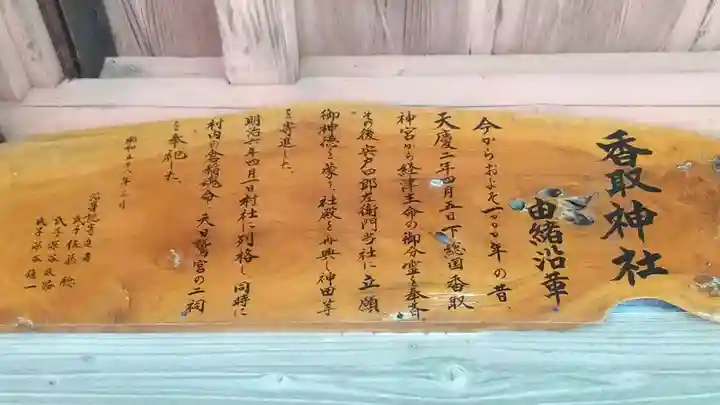 香取神社
由緒沿革
今からおよそ一〇〇〇年の昔、
天慶二年四月五日下総国香取
神宮から経津主命の御分霊を奉斎
その後宍戸四郎左衛門当社に立願
御神徳を蒙り社殿を再興し神田等
を寄進した。
明治 年四月一日村社に列格し同時に
村内の倉稲魂命 天日鷲宮の二祠
を奉祀した。
昭和五十八年 月
沿革記寄進者
氏子 佐藤
氏子
氏子